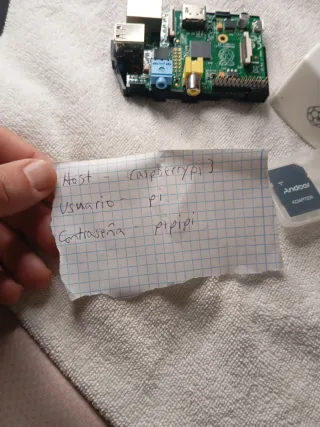 Host - raspberrypi3
Usuario - pi
Contraseña - pipipi
Andoer
ADAPTER